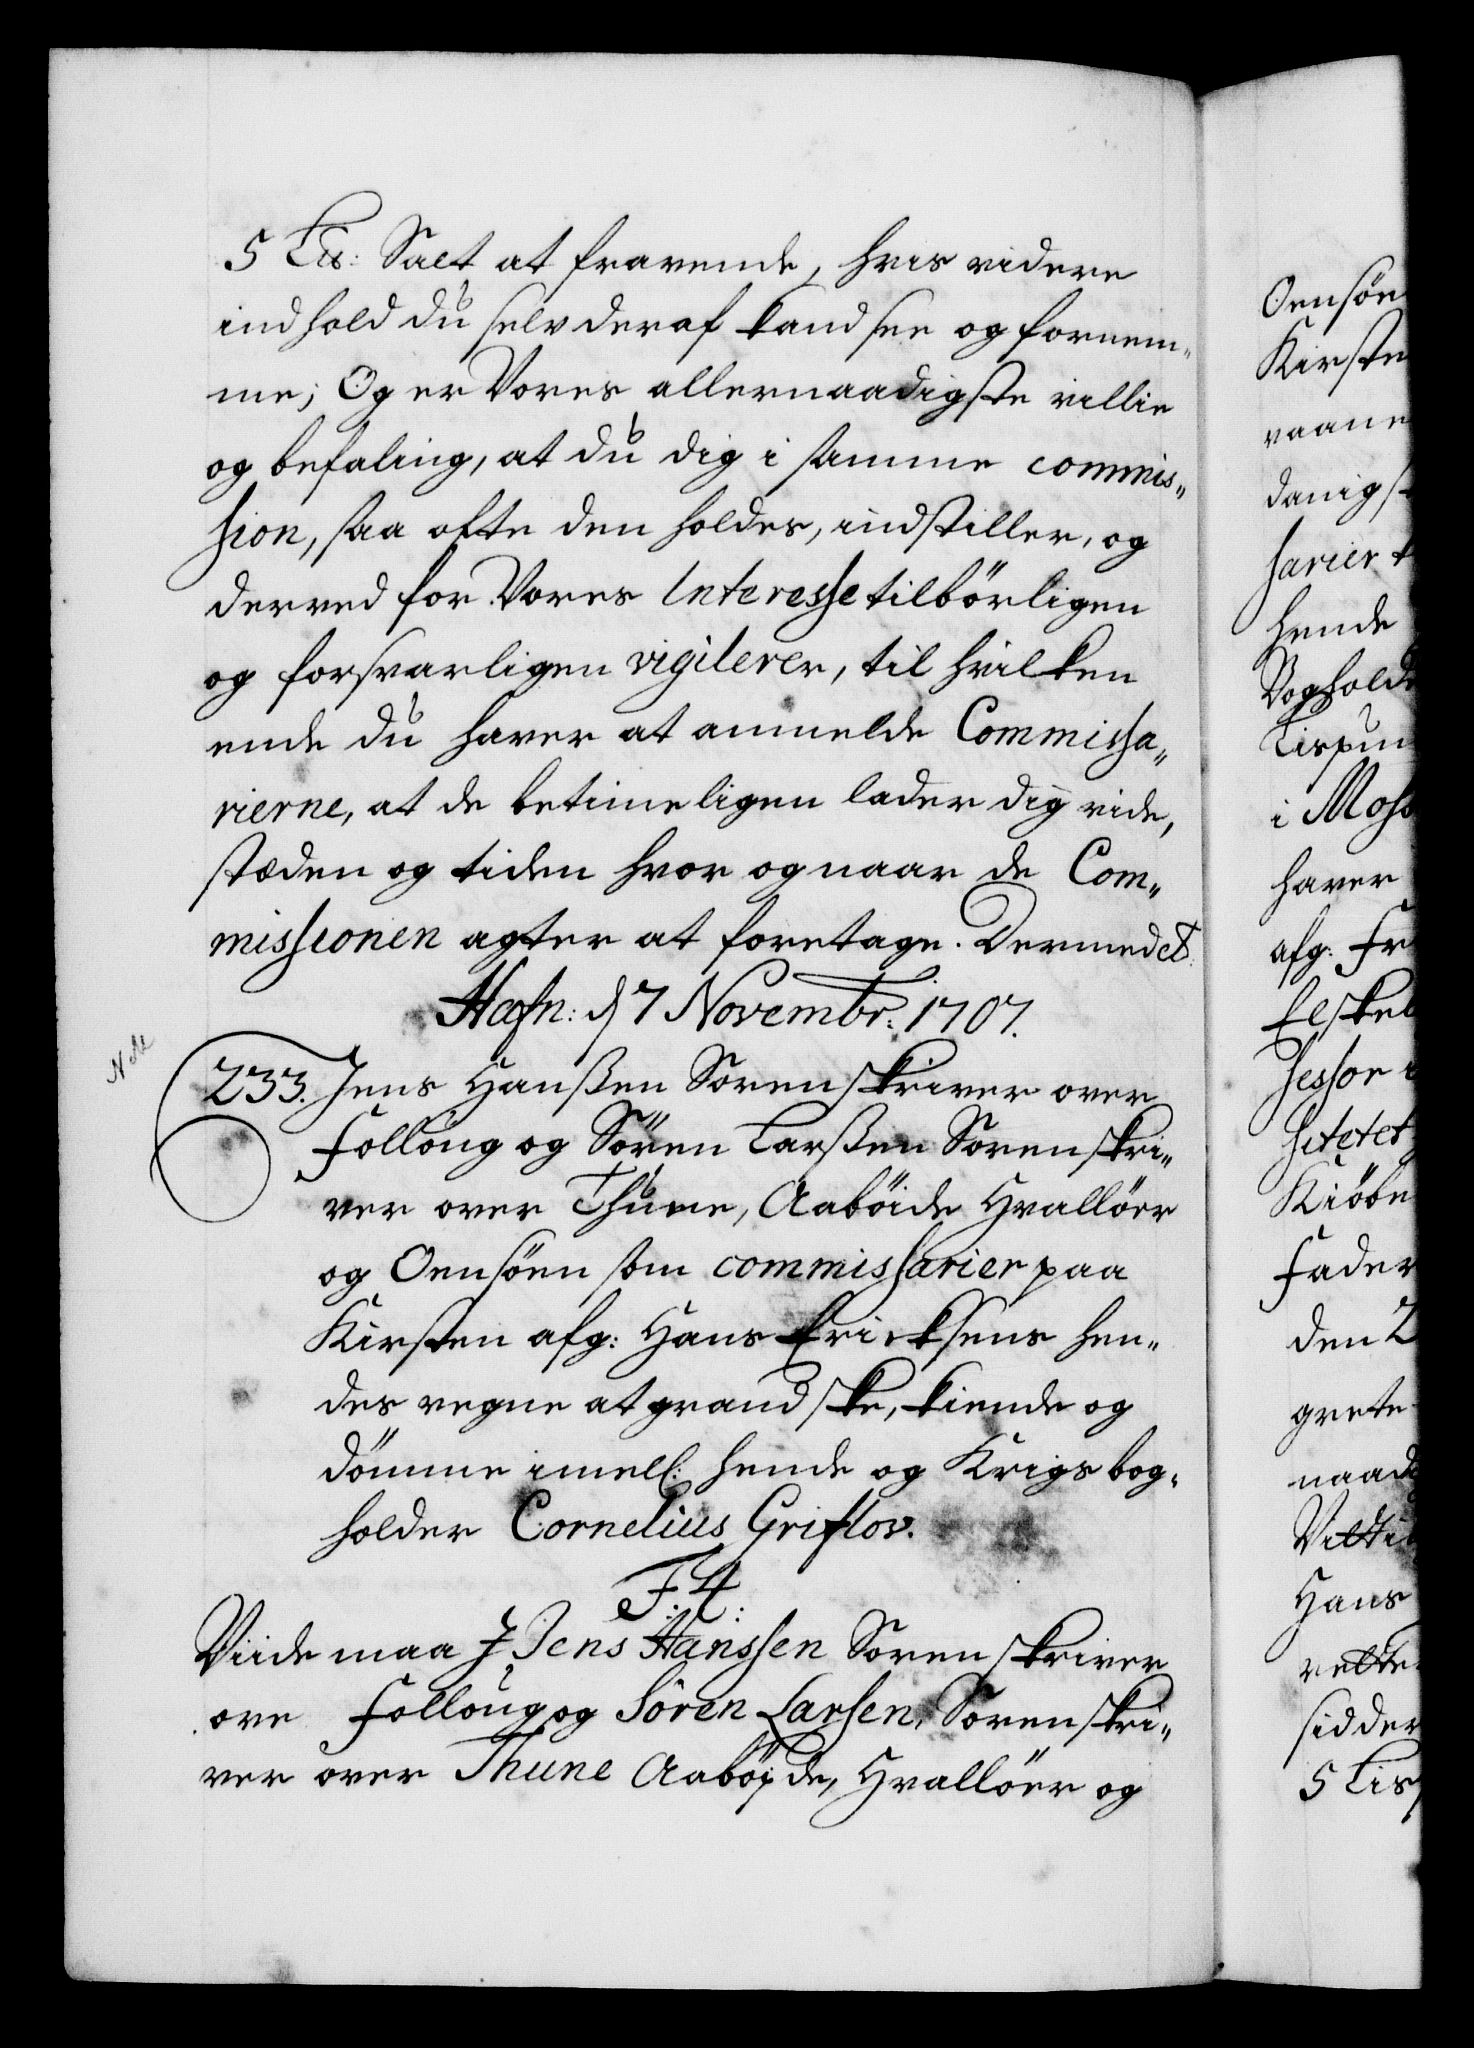 5 Lis: Salt at fravende, hvis videre
indhold du selv deraf kand see og fornem„
me; Og er Vores allernaadigste villie
og befaling, at du dig i samme commis„
sion, saa ofte den holdes, indstiller, og
derved for Vores Interesse tilbörligen
og forsvarligen vigilerer, til hvilken
ende du haver at anmelde Commissa„
rierne, at de betimeligen lader dig vide,
stæden og tiden hvor og naar de Com„
missionen agter at foretage. Dermed et
Hafn: d 7 Novembr: 1707.
233. Jens Hanßen Sorenskriver over
Follöug og Sören Larßen Sorenskri„
ver over Thune, Aaböide Hvallöer
og Oensöen som commissarier paa
Kirsten afg: Hans Ericksens hen„
des vegne at grandske, kiende og
dömme imell: hende og Krigsbog„
holder Cornelius Griflov.
F. 4:
Viide maa J Jens Hanssen Sorenskriver
ove Follöug og Sören Larsen, Sorenskri„
ver over Thune Aaböjde, Hvallöer og
Oensöe
Kirste
vaane
danigs
sarier
hende
Bogholde
Lispun
i Moss
haver
afg: Fr
Elskel
sessor
sitetet
Kiöbe
Fader
den 2
grete
naad
Vilti
Hans
rette
sidder
5 Lis